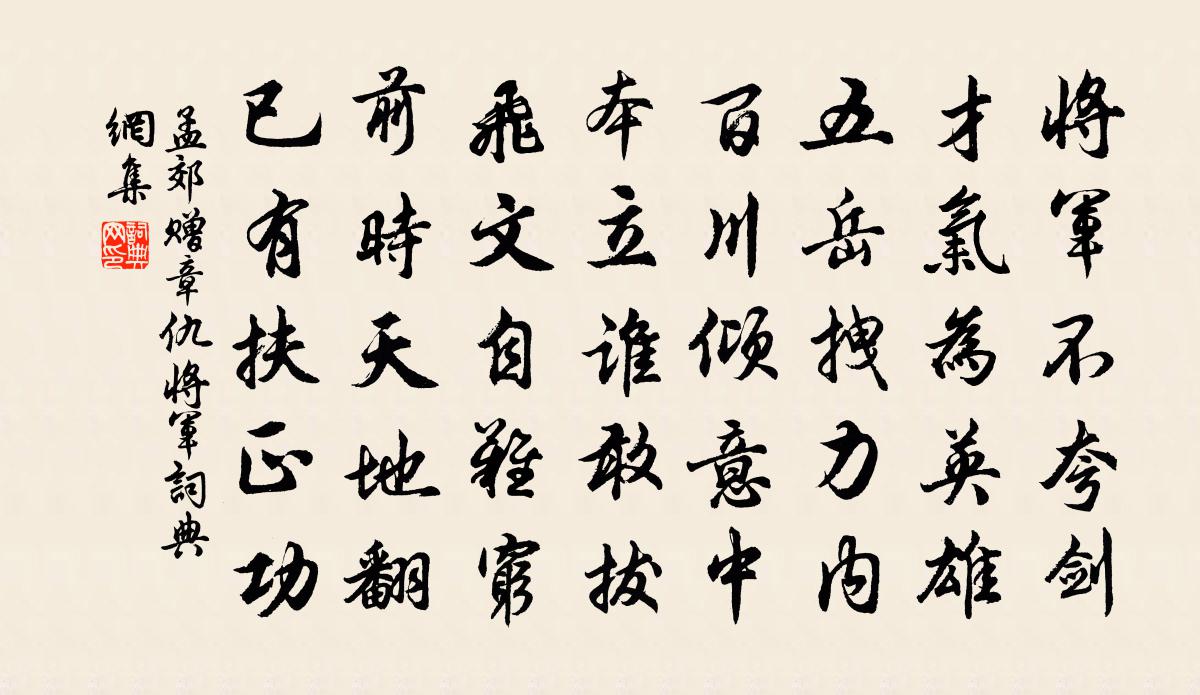 將軍不夸劍
才氣為英雄
五岳拽力內
百川傾意中
本立誰敢拔
飛文自難窮
前時天地翻
已有扶正功
孟郊贈章仇將軍詞典
網集
詞典網印